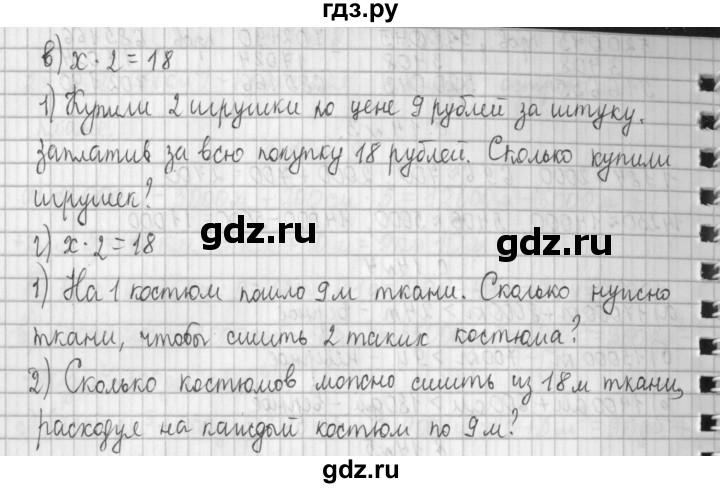 гдз.ру
в) x · 2 = 18
1) Купили 2 игрушки по цене 9 рублей за штуку,
заплатив за всю покупку 18 рублей. Сколько купили
игрушек?
gdz.ru gdz.ru
г) x · 2 = 18
1) На 1 костюм пошло 9м ткани. Сколько нужно
ткани, чтобы сшить 2 таких костюма?
2) Сколько костюмов можно сшить из 18м ткани,
расходуя на каждый костюм по 9м?
gdz.ru